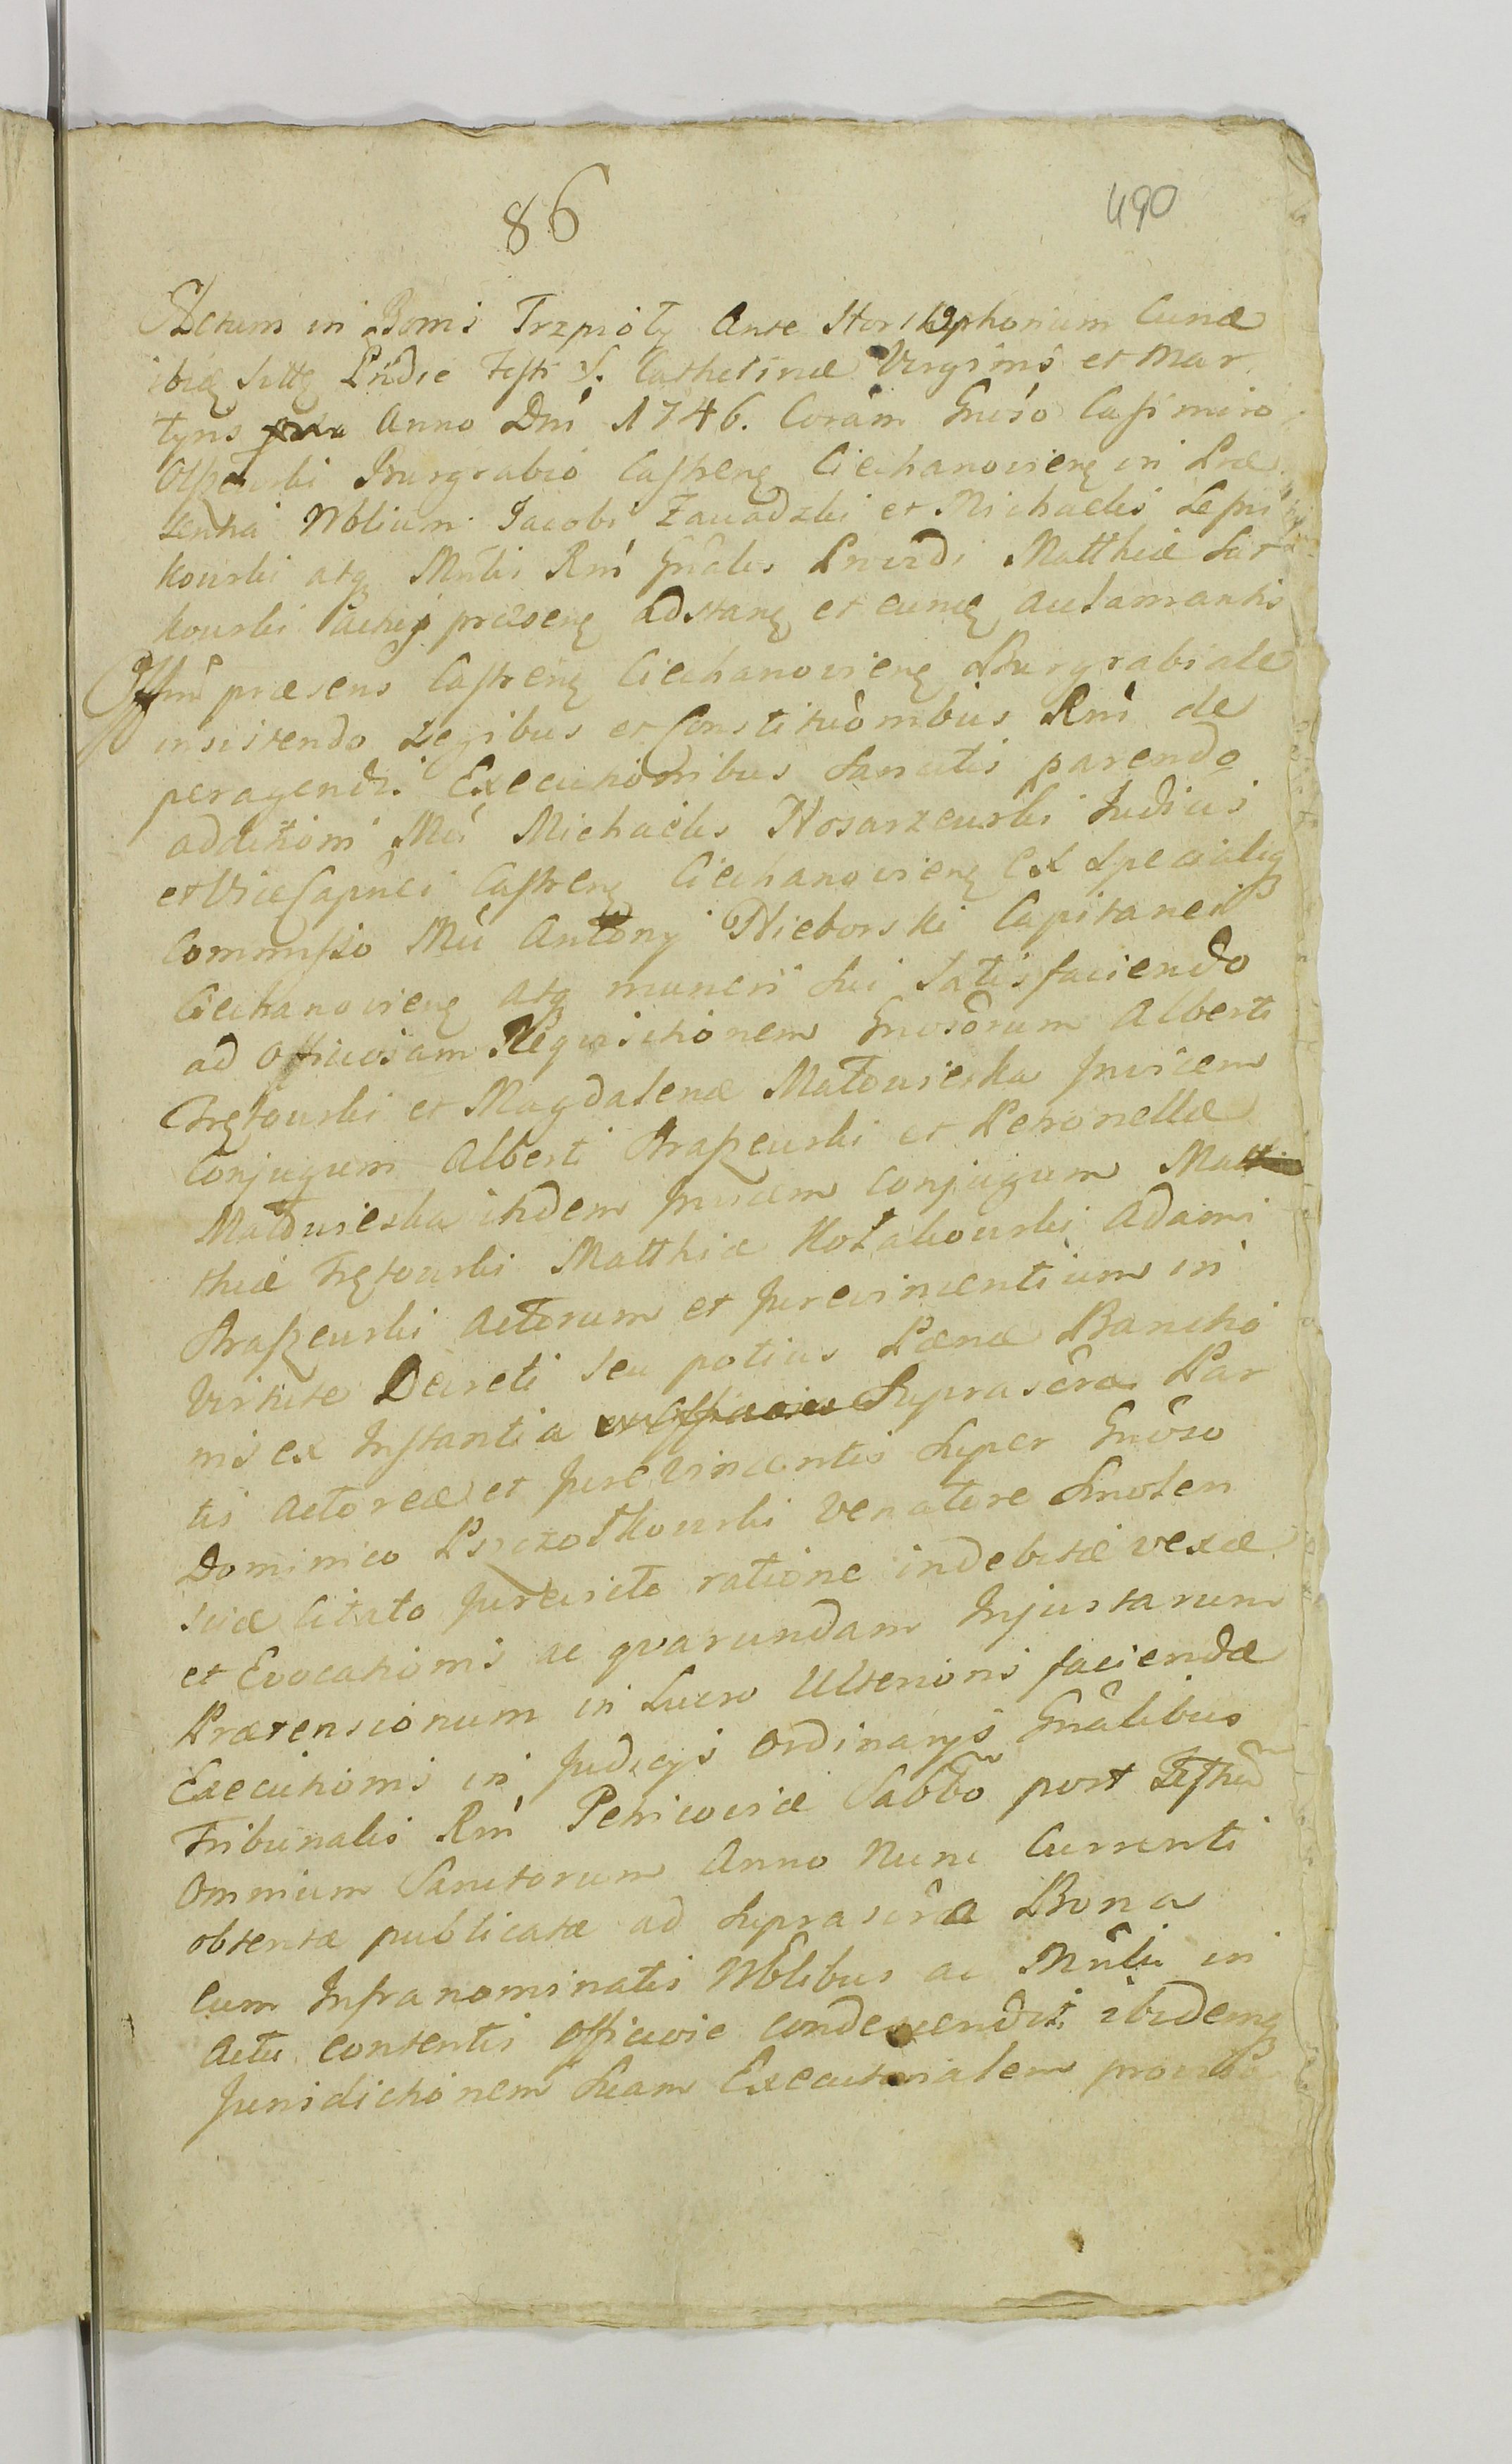 86
490
Actum in Bonis Trzpioły Ante Curiæ
ibiq sittq Pridie Festi S. Catherinæ Virginis et Mar
tyris Anno Dni 1746. Coram Gnoso Casimiro
Burgrabio Castrenq Ciechanovienq in Præ
sentia Nblium Jacobi Zawadzki et Michaelis Lesni
kowski atq Mnlis Rni Gnalis Providi Matthiæ Sar
kowski actuj præsenq adstanq et eumq autamantis
Offm præsens Castrenq Ciechanovienq Burgrabiale
insistendo Legibus et Constitunombus Rni de
peragend. Executionibus Sancitis parendo
additioni Mci Michaelis Nosarzewski Judicis
et ViceCapnei Castrenq Ciechanovienq ex specialiq
Commisso Mci Antony Nieborski Capitanei
Ciechanovienq atq muneri sui Satisfaciendo
ad officiosam Requisitionem Gnosorum Alberti
Trętowski et Magdalenæ Małowieska Invicem
Conjugum Alberti Straszewski et Petronellæ
Małowieska itidem Invicem Conjugum Mat
thiæ Trętowski Matthiæ Kołakowski Adami
Straszewski Actorum et Jurevincentium in
Virtute Decreti seu potius Pænæ Bannitio
nis ex Instantia Suprascræ Par
tis Actoreæ et Jurevincentis super Gnoso
Dominico Pszczołkowski Venatore Smolen
sciæ Citato Jurevicto ratione indebitæ vexæ
et Evocationis ac quarundam Injustarum
Prætensionum in Lucro Ulterioris faciendæ
Executionis in Judicys Ordinarys Gnalibus
Tribunalis Rni Petricoviæ Sabbo post Festum
Omnium Sanctorum Anno Nunc Currenti
obtentæ publicatæ ad suprascra Bona
cum Infranominatis Nblibus ac Mnli in
Actu contentis officiose condescendit ibidemq
Jurisdictionem suam Executorialem